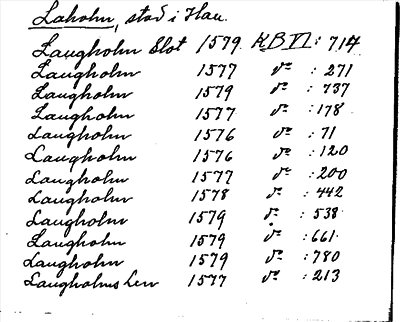 Laholm, stad i Hall.
Laugholm Slot 1579. KB VI: 714
Laugholm 1577 do : 271
Laugholm 1579 do : 737
Laugholm 1577 do : 178
Laugholm 1576 do : 71
Laugholm 1576 do : 120
Laugholm 1577 do : 200
Laugholm 1578 do : 442
Laugholm 1579 do : 538
Laugholm 1579 do : 661
Laugholm 1579 do : 780
Laugholms Len 1577 do : 213